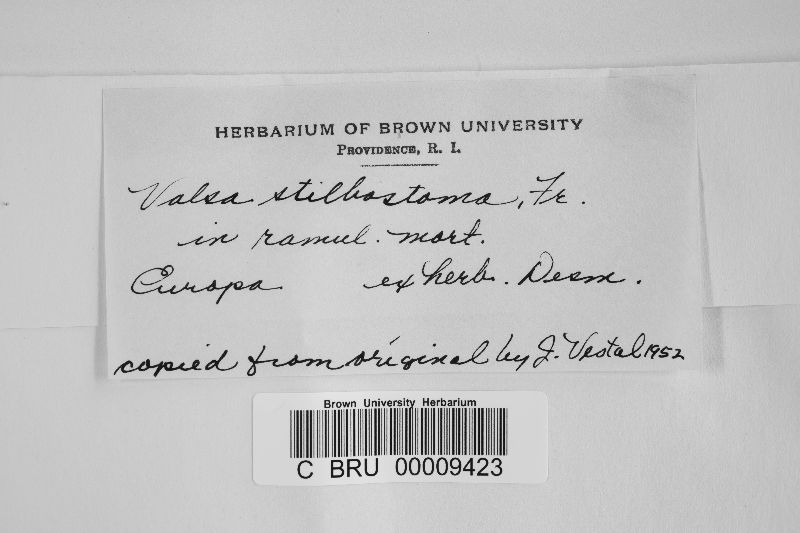 HERBARIUM OF BROWN UNIVERSITY
PROVIDENCE, R. I.
Valsa stilbostoma, Fr.
in ramul. mort.
Europa ex herb. Desm.
copied from original by J. Vestal 1952
Brown University Herbarium
C BRU 00009423